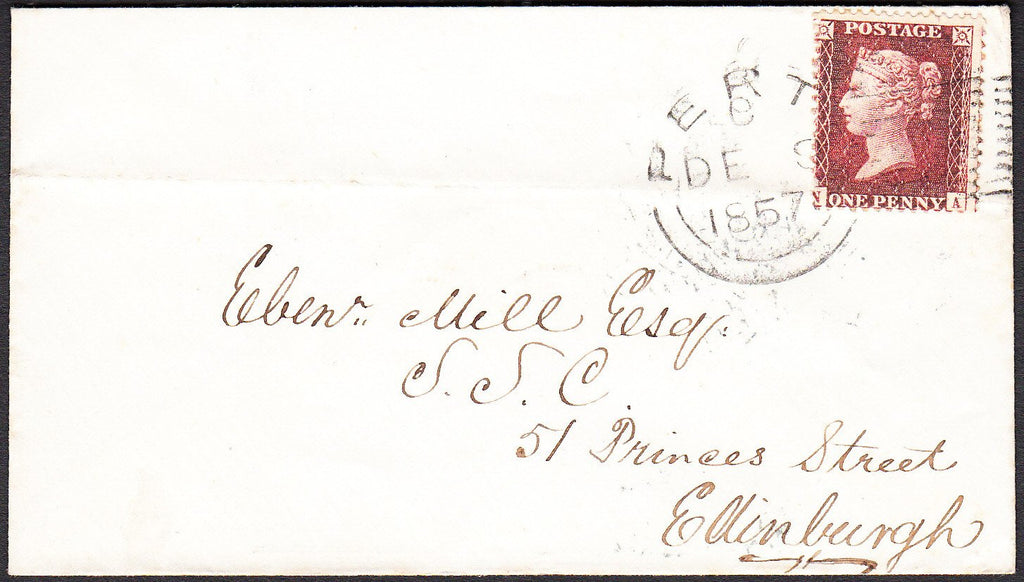 POSTAGE
ONE PENNY A
PERT
C
DE
1857
Ebenr. Mill Esq.
S. S. C.
51 Princes Street
Edinburgh